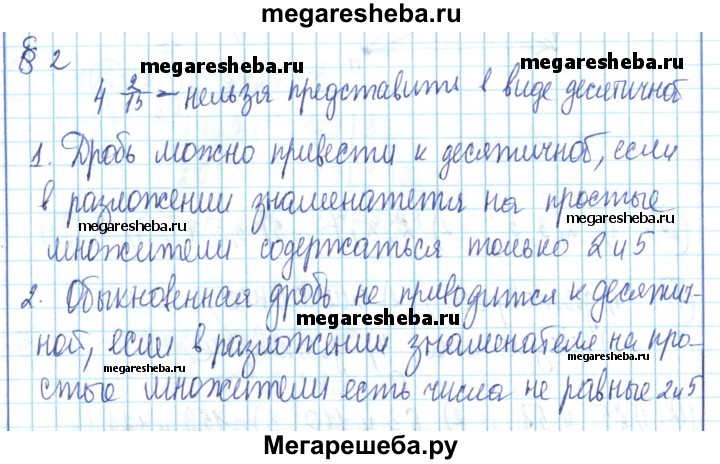 megaresheba.ru
§ 2
megaresheba.ru megaresheba.ru
4 2/15 – нельзя представить в виде десятичной
1. Дробь можно привести к десятичной, если
в разложении знаменателя на простые
megaresheba.ru megaresheba.ru
множители содержаться только 2 и 5
2. Обыкновенная дробь не приводится к десятич-
megaresheba.ru
ной, если в разложении знаменателя на про-
megaresheba.ru megaresheba.ru
стые множители есть числа не равные 2 и 5
Мегарешеба.ру